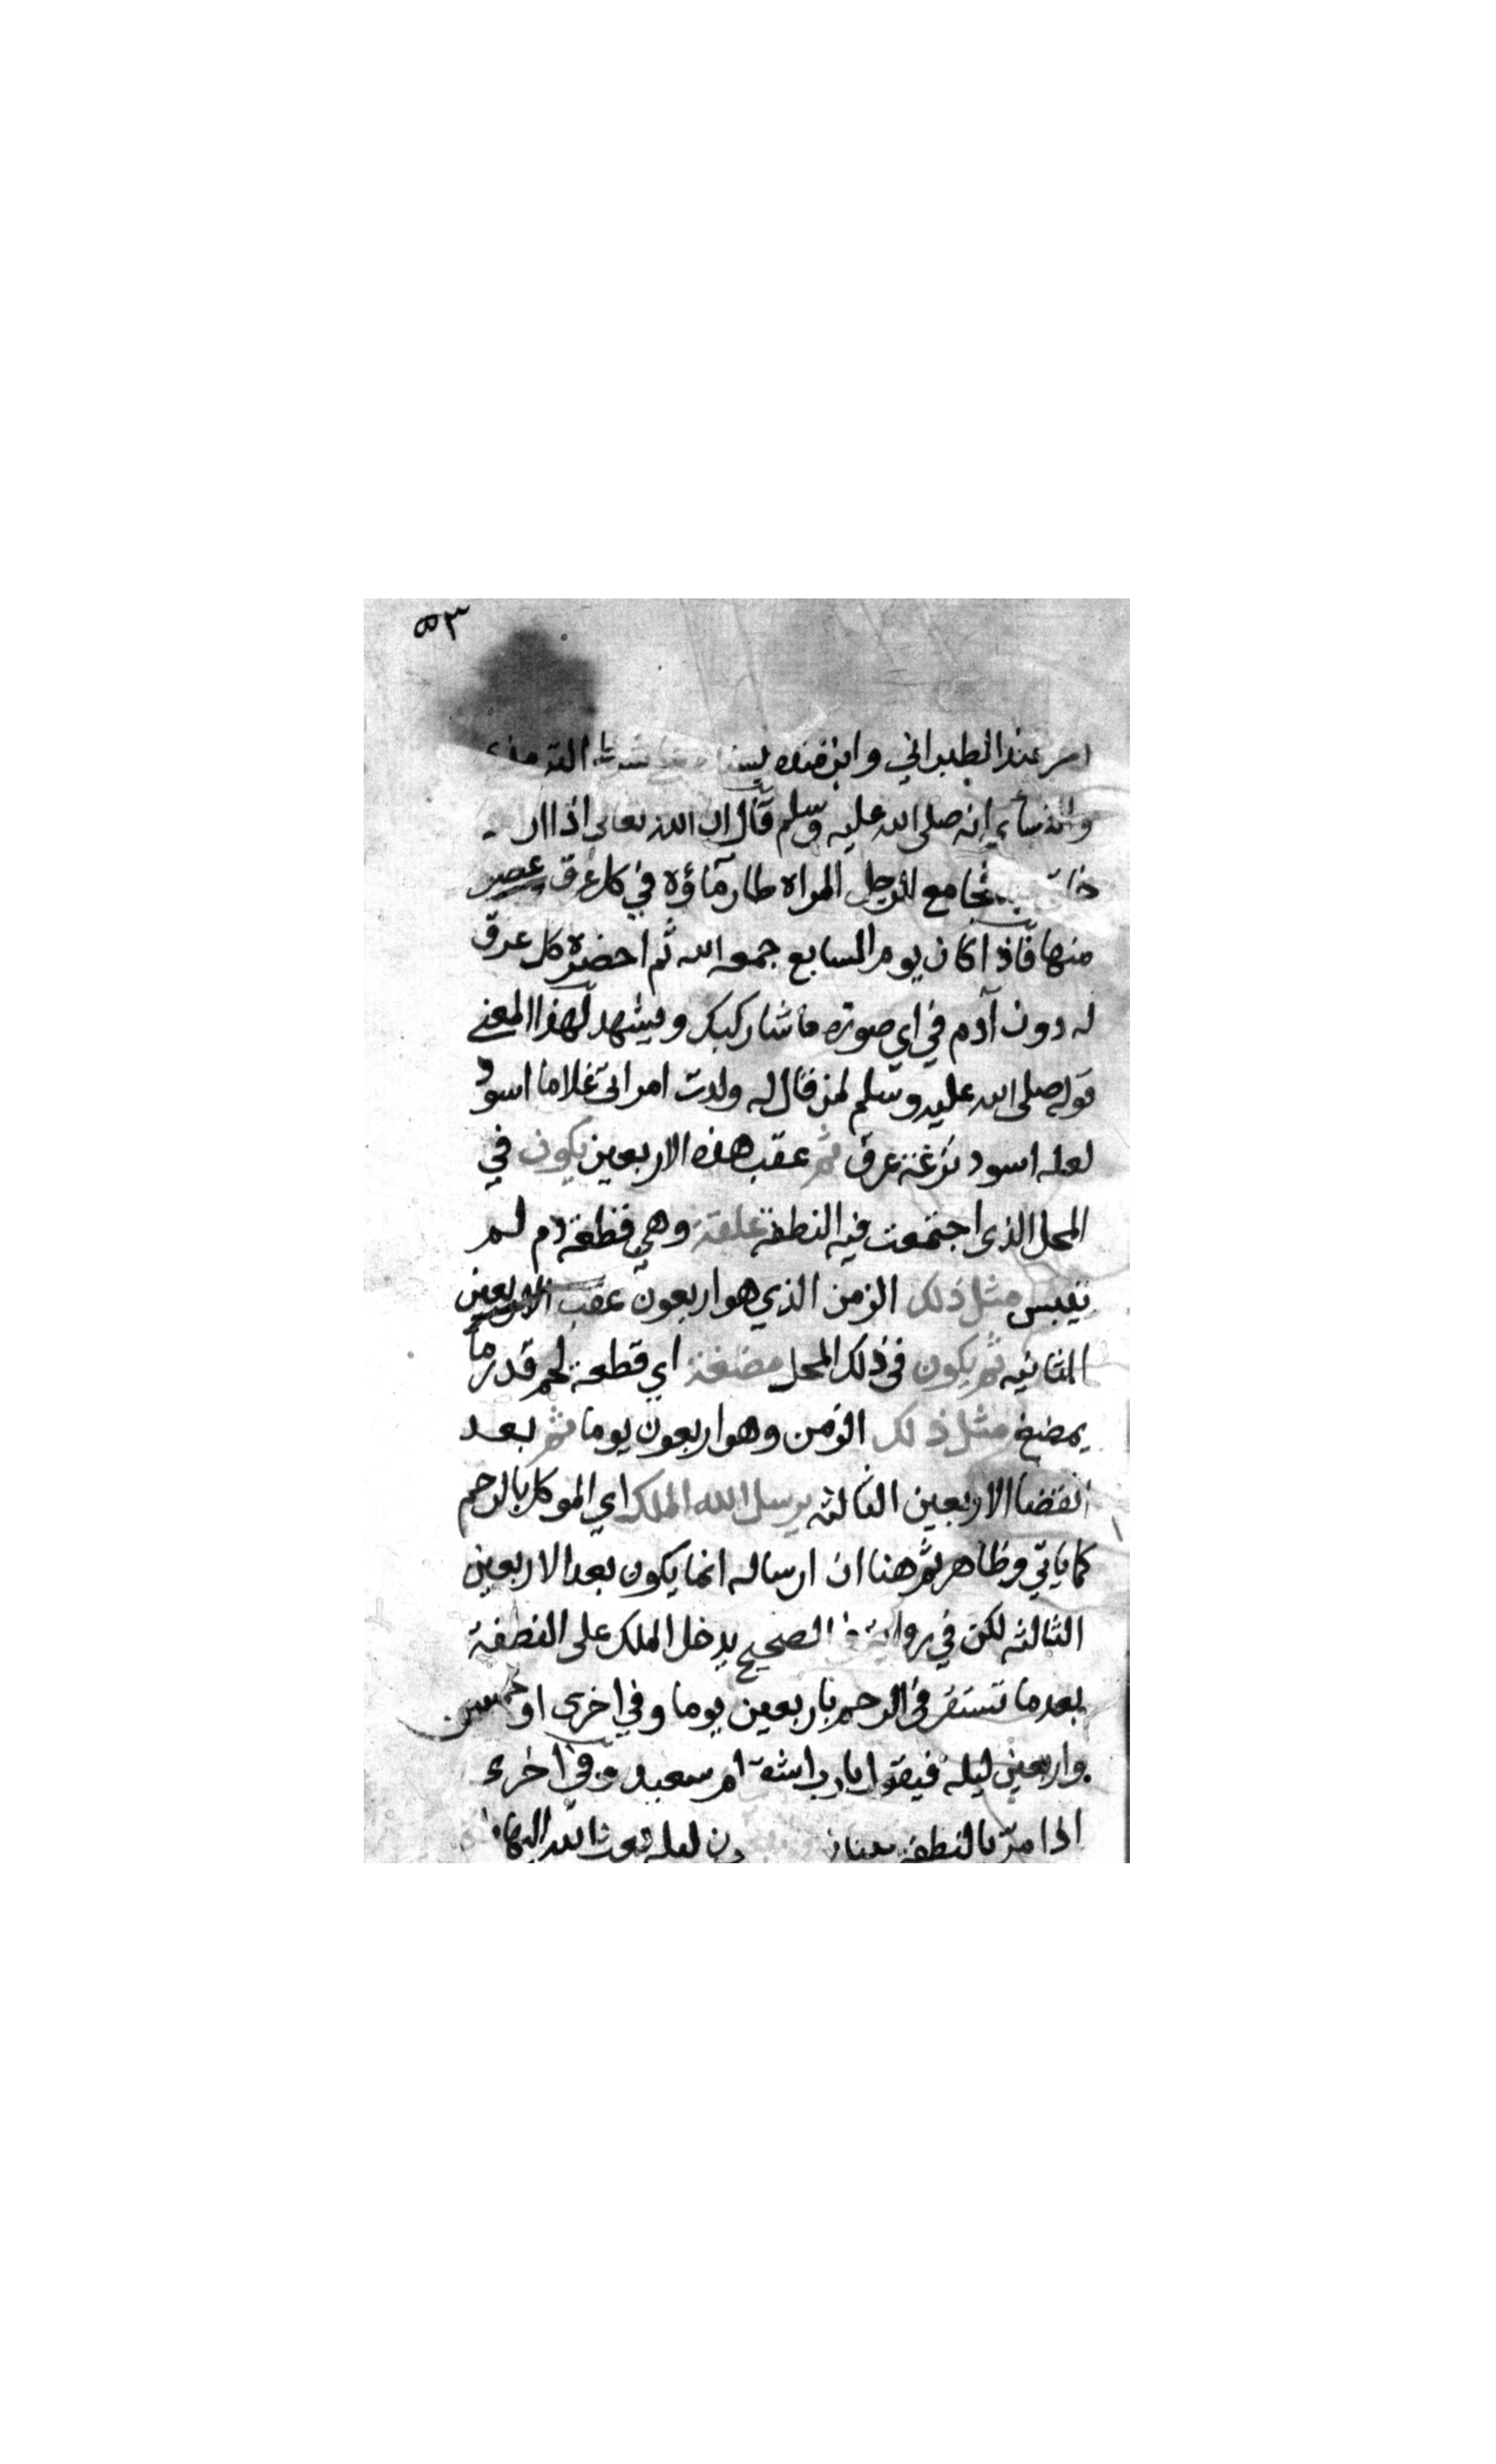 ٥٣
عند الطبراني وابن منده بسند على شرط الترمذي
والنسائي انه صلى الله عليه وسلم قال ان الله تعالى اذا ار
فجامع الرجل المراه طار ماؤه في كل عرق وعصب
منها فاذا كان يوم السابع جمعه الله ثم احضره كل عرق
له دون آدم في اي صوره ما شا ركبك ويشهد لهذا المعنى
قوله صلى الله عليه وسلم لمن قال له ولدت امراتي غلاما اسود
لعله اسود نزغه عرق ثم عقب هذه الاربعين يكون في
المحل الذي اجتمعت فيه النطفة علقة وهي قطعة دم لم
تيبس مثل ذلك الزمن الذي هو اربعون عقب الاربعين
الثانيه ثم يكون في ذلك المحل مضغة اي قطعة لحم قدر ما
يمضغ مثل ذلك الزمن وهو اربعون يوما ثم بعد
انقضا الاربعين الثالثه يرسل الله الملك اي الموكل بالرحم
كما ياتي وظاهر ثم هنا ان ارساله انما يكون بعد الاربعين
الثالثه لكن في رواية في الصحيح يدخل الملك على النطفة
بعد ما تستقر في الرحم باربعين يوما وفي اخرى او خمس
واربعين ليله فيقول يا رب اشقي ام سعيد وفي اخرى
اذا مر بالنطفة ليله بعث الله اليها